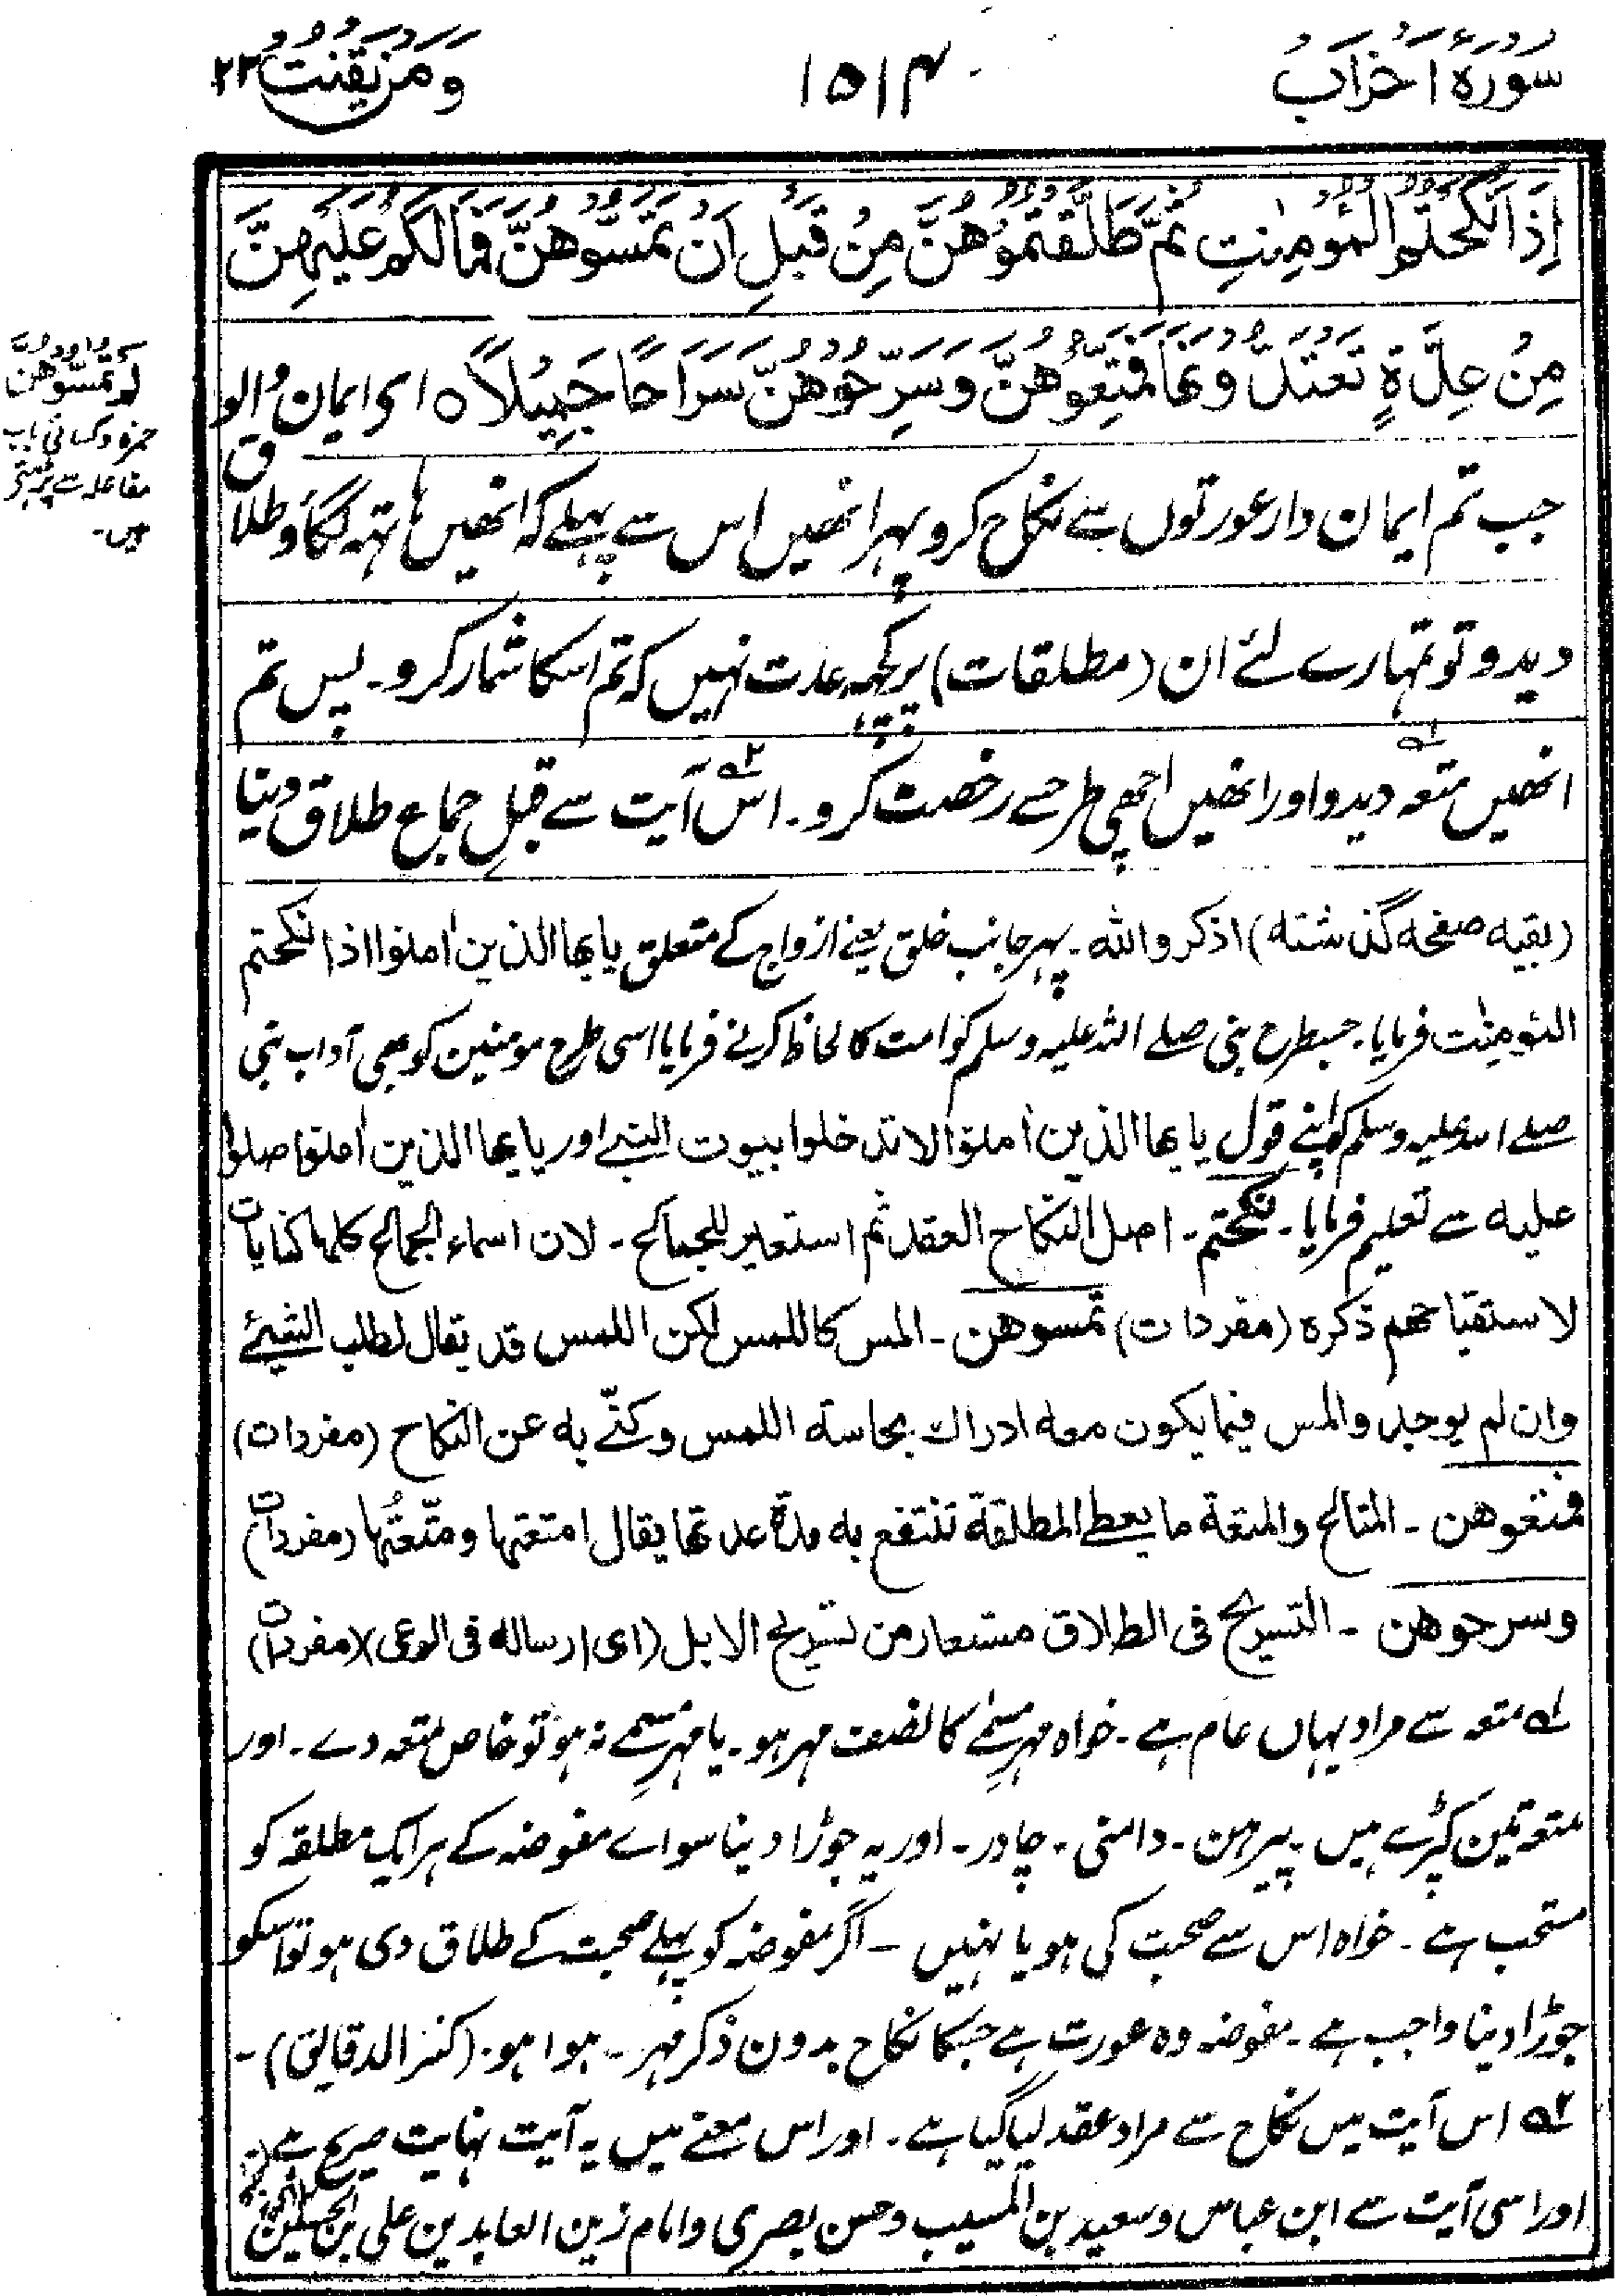 سُورَةُ اَحْزَابُ
۱۵۱۴
وَمَنْ يَّقْنُتْ ۲۲
اِذَا نَكَحْتُمُ الْمُؤْمِنٰتِ ثُمَّ طَلَّقْتُمُوْهُنَّ مِنْ قَبْلِ اَنْ تَمَسُّوْهُنَّ فَمَا لَكُمْ عَلَيْهِنَّ
مِنْ عِدَّةٍ تَعْتَدُّوْنَهَا فَمَتِّعُوْهُنَّ وَسَرِّحُوْهُنَّ سَرَاحًا جَمِيْلًا ○ ای ایمان والو
جب تم ایمان دار عورتوں سے نکاح کرو پہر انھیں اس سے پہلے کہ انھیں ہاتہہ لگاؤ طلاق
دیدو تو تمہارے لئے ان (مطلقات) پر کچہہ عدت نہیں کہ تم اسکا شمار کرو۔ پس تم
انھیں متعہ ۱؎ دیدو اور انھیں اچھی طرح سے رخصت کرو۔ اس ۲؎ آیت سے قبلِ جماع طلاق دینا
تُمَسُّوْهُنَّ
حمزہ و کسائی باب
مفاعلہ سے پڑہتے
ہیں۔
(بقیہ صفحہ گذشتہ) اذکروا اللہ۔ پہر جانب خلق یعنے ازواج کے متعلق یایھا الذین اٰمنوا اذا نکحتم
المؤمنٰت فرمایا۔ جسطرح نبی صلے اللہ علیہ وسلم کو امت کا لحاظ کرنے فرمایا اسی طرح مومنین کو بھی آداب نبی
صلے اللہ علیہ وسلم کو اپنے قول یایھا الذین اٰمنوا لا تدخلوا بیوت النبے اور یایھا الذین اٰمنوا صلوا
علیہ سے تعلیم فرمایا۔ نکحتم۔ اصل النکاح العقد ثم استعیر للجماع۔ لان اسماء الجماع کلہا کنایات
لاستقباحھم ذکرہ (مفردات) تمسوھن۔ المس کاللمس لکن اللمس قد یقال لطلب الشیئے
وان لم یوجد والمس فیما یکون معہ ادراك بحاسۃ اللمس وکنّے بہ عن النکاح (مفردات)
فمتعوھن۔ المتاع والمتعۃ ما یعطے المطلقۃ تنتفع بہ مدۃ عدتھا یقال امتعتہا ومتّعتُہا (مفردات)
وسرحوھن۔ التسریح فی الطلاق مستعار من تسریح الابل (ای ارسالہ فی الرعی) (مفردات)
۱؎ متعہ سے مراد یہاں عام ہے۔ خواہ مہر مسمٰے کا نصف مہر ہو۔ یا مہر مسمے نہ ہو تو خاص متعہ دے۔ اور
متعہ تین کپڑے ہیں۔ پیرہن۔ دامنی۔ چادر۔ اور یہ جوڑا دینا سواے مفوضہ کے ہر ایک مطلقہ کو
مستحب ہے۔ خواہ اس سے صحبت کی ہو یا نہیں۔ اگر مفوضہ کو پہلے صحبت کے طلاق دی ہو تو اسکو
جوڑا دینا واجب ہے۔ مفوضہ وہ عورت ہے جسکا نکاح بدون ذکر مہر۔ ہوا ہو۔ (کنز الدقایق)۔
۲؎ اس آیت میں نکاح سے مراد عقد لیا گیا ہے۔ اور اس معنے میں یہ آیت نہایت صریح ہے
اور اسی آیت سے ابن عباس و سعید بن المسیب و حسن بصری و امام زین العابدین علی بن الحسین